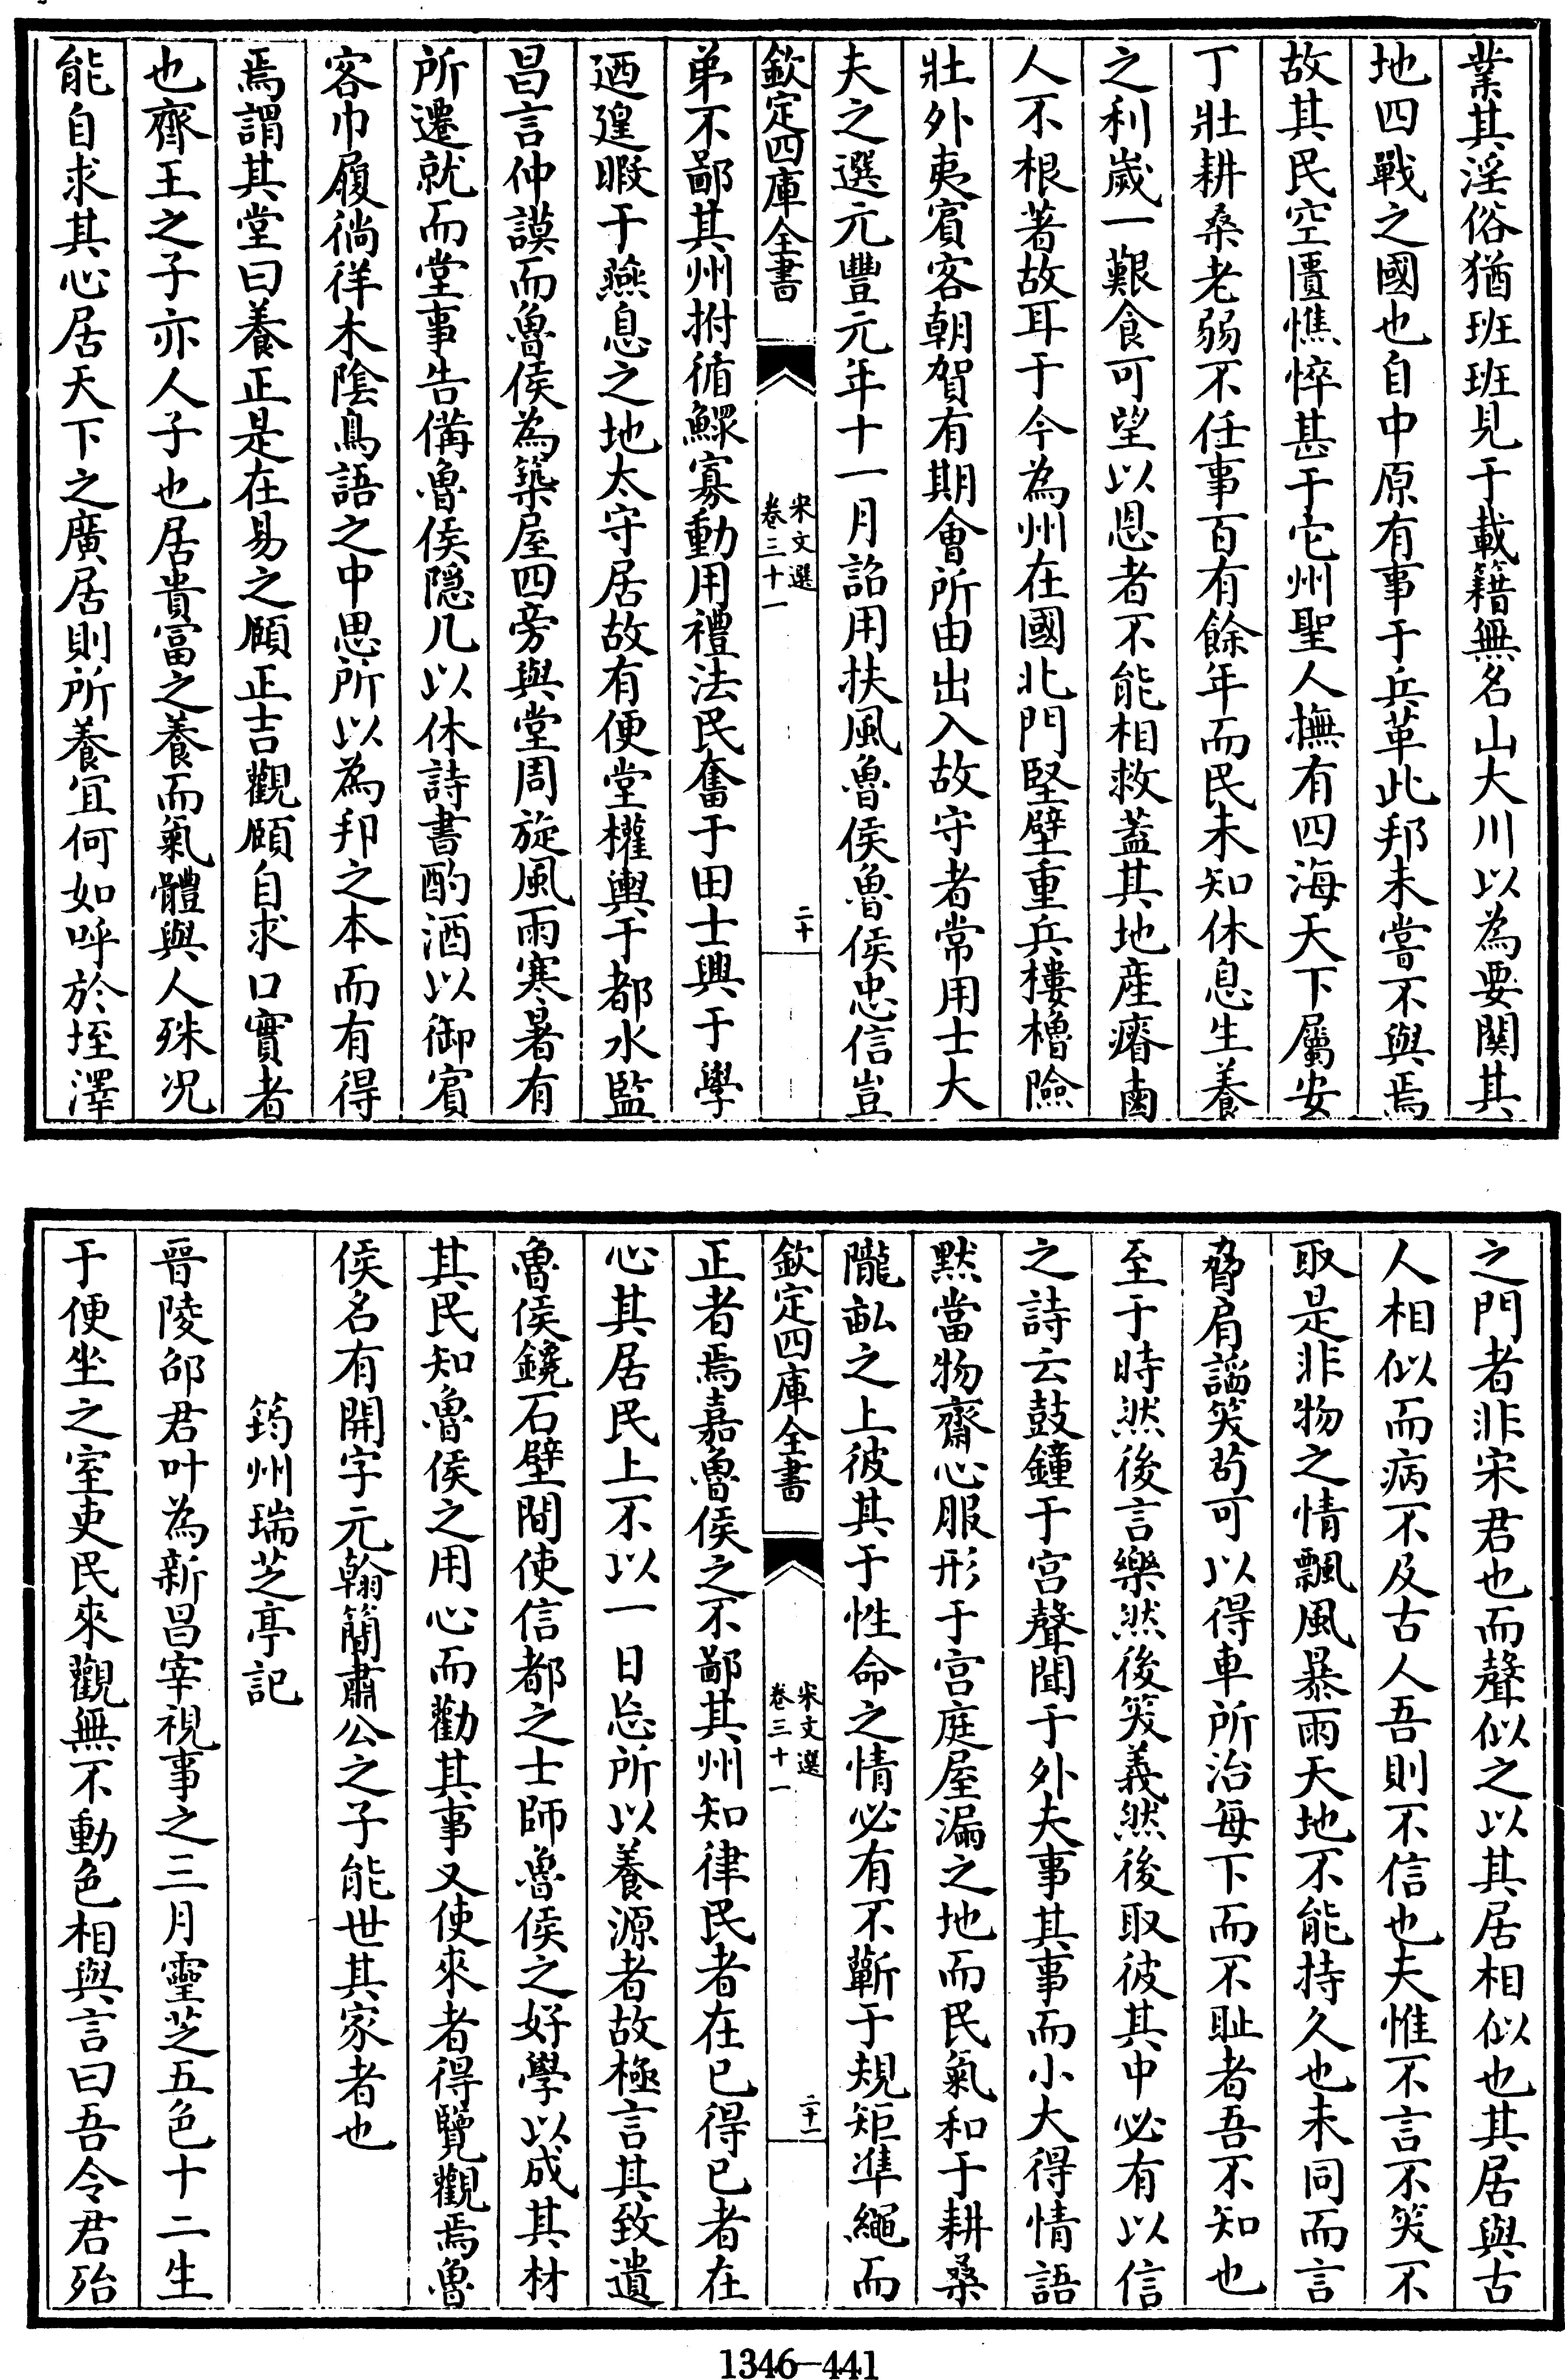 業其淫俗猶班班見于載籍無名山大川以為要關其
地四戰之國也自中原有事于兵革此邦未嘗不與焉
故其民空匱憔悴甚于它州聖人撫有四海天下屬安
丁壯耕桑老弱不任事百有餘年而民未知休息生養
之利歲一艱食可望以恩者不能相救蓋其地産瘠鹵
人不根著故耳于今為州在國北門堅壁重兵樓櫓險
壯外夷賓客朝賀有期會所由出入故守者常用士大
夫之選元豐元年十一月詔用扶風魯侯魯侯忠信豈
欽定四庫全書
宋文選
卷三十一
二十
弟不鄙其州拊循鰥寡動用禮法民奮于田士興于學
迺遑暇于燕息之地太守居故有便堂權輿于都水監
昌言仲謨而魯侯為築屋四旁與堂周旋風雨寒暑有
所遷就而堂事告備魯侯隱几以休詩書酌酒以御賓
客巾履徜徉木陰鳥語之中思所以為邦之本而有得
焉謂其堂曰養正是在易之頤正吉觀頤自求口實者
也齊王之子亦人子也居貴富之養而氣體與人殊况
能自求其心居天下之廣居則所養宜何如呼於垤澤
之門者非宋君也而聲似之以其居相似也其居與古
人相似而病不及古人吾則不信也夫惟不言不笑不
取是非物之情飄風暴雨天地不能持久也未同而言
脅肩諂笑苟可以得車所治每下而不耻者吾不知也
至于時然後言樂然後笑義然後取彼其中必有以信
之詩云鼓鐘于宮聲聞于外夫事其事而小大得情語
默當物齋心服形于宮庭屋漏之地而民氣和于耕桑
隴畝之上彼其于性命之情必有不蘄于規矩準繩而
欽定四庫全書
宋文選
卷三十一
二十一
正者焉嘉魯侯之不鄙其州知律民者在已得已者在
心其居民上不以一日忘所以養源者故極言其致遺
魯侯鑱石壁間使信都之士師魯侯之好學以成其材
其民知魯侯之用心而勸其事又使來者得覽觀焉魯
侯名有開字元翰簡肅公之子能世其家者也
筠州瑞芝亭記
晉陵邵君叶為新昌宰視事之三月靈芝五色十二生
于便坐之室吏民來觀無不動色相與言曰吾令君殆
1346-441